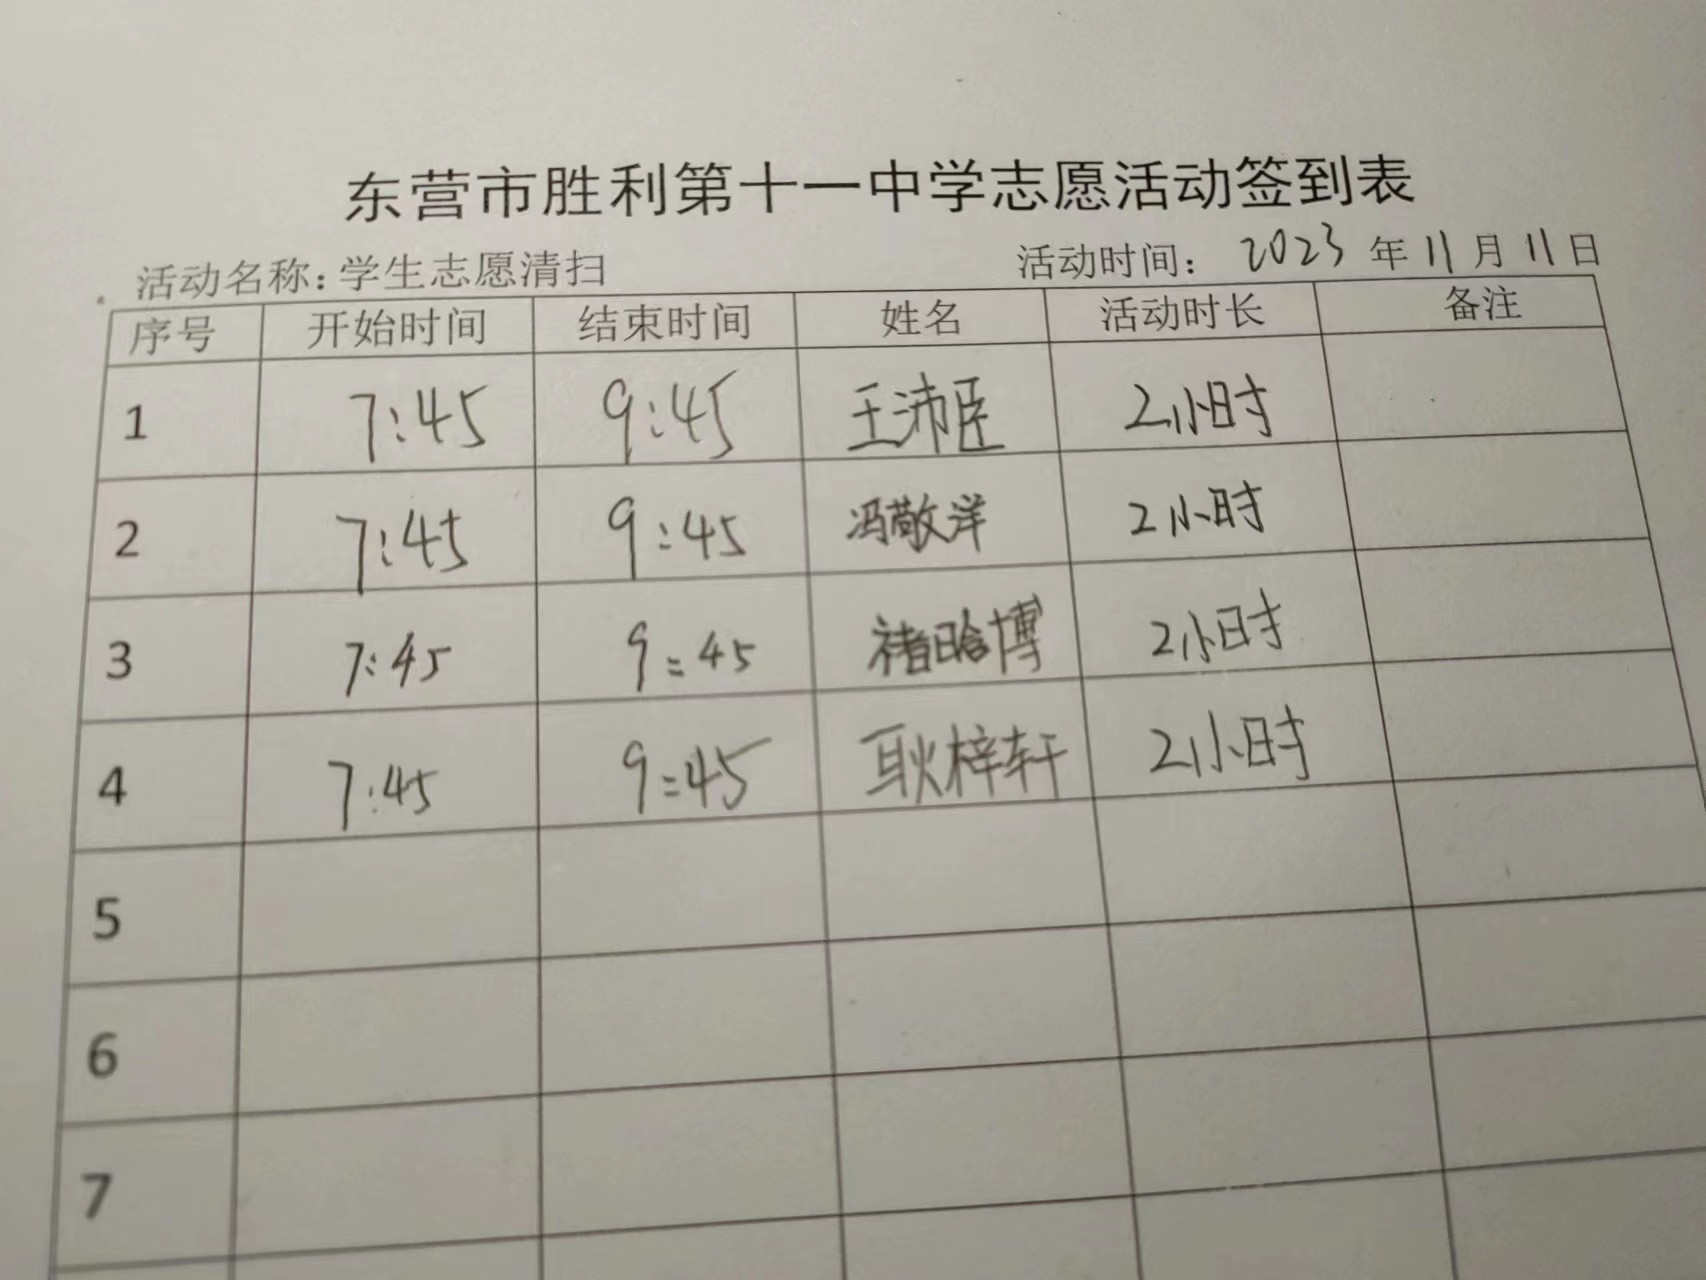 东营市胜利第十一中学志愿活动签到表
活动名称：学生志愿清扫 活动时间： 2023 年 11 月 11 日
序号 开始时间 结束时间 姓名 活动时长 备注
1 7:45 9:45 王沛臣 2小时
2 7:45 9:45 冯敬洋 2小时
3 7:45 9:45 褚晗博 2小时
4 7:45 9:45 耿梓轩 2小时
5
6
7